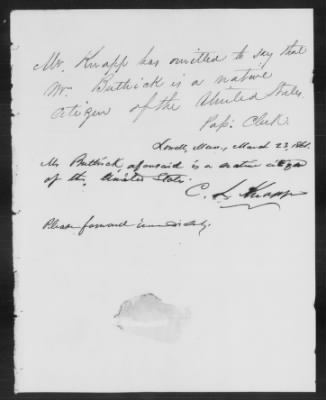 Mr. Knapp has omitted to say that
Mr. Buttrick is a native
citizen of the United States.
Pass: Clerk.
Lowell, Mass, March 23, 1861.
Mr Buttrick, aforesaid is a native citizen
of the United States.
C. L. Knapp
Please forward immediately.